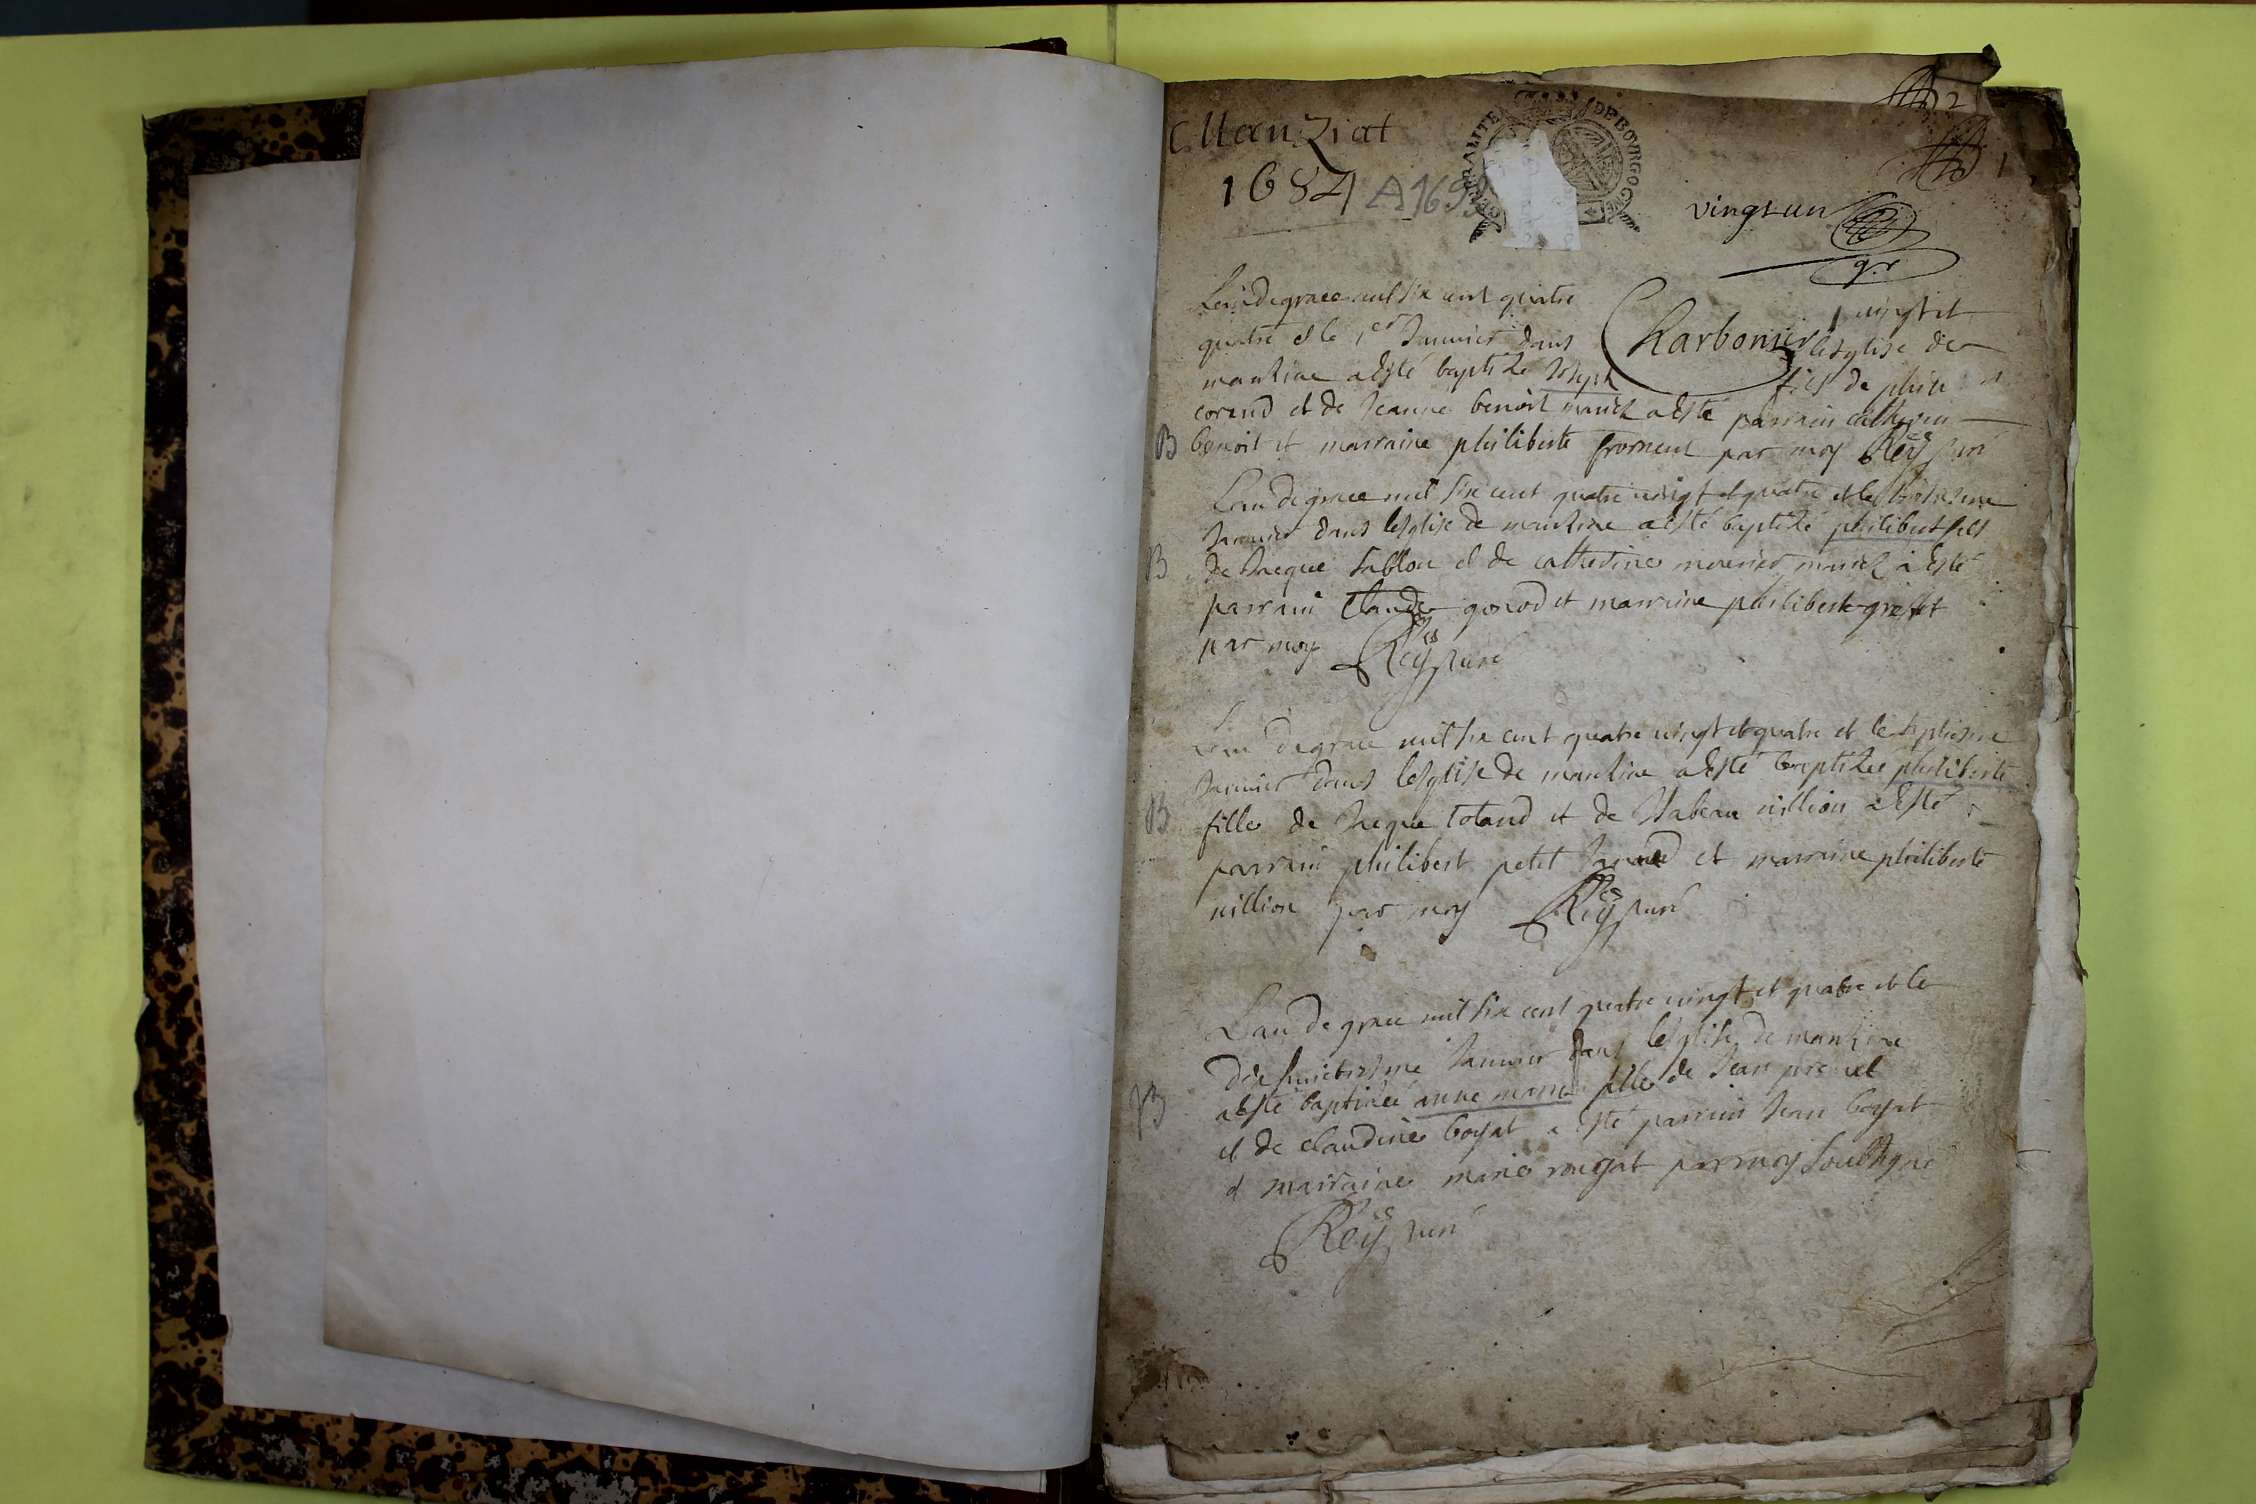 Manziat
1684 A 1699
GENERALITE DE BOURGOGNE
2
1
vingt un
Lan de grace mil six cent quatre vingt et
quatre et le 1er Janvier dans Charbonier lesglise de
manziae a esté baptizé Joseph fils de
corand et de Jeanne benoit mariez a esté parrain
B benoit et marraine philiberte froment par moy Rey curé
Lan de grace mil six cent quatre vingt et quatre et le
Janvier dans lesglise de manziae a esté baptizé philibert fils
B de Jacque sablon et de catherine mariez a esté
parrain Claude gonod et marraine philiberte
par moy Rey curé
Lan de grace mil six cent quatre vingt et quatre et le septiesme
Janvier dans lesglise de manziae a esté baptizée philiberte
B fille de Jacque et de Isabeau villion a esté
parrain philibert petit et marraine philiberte
villion par moy Rey curé
Lan de grace mil six cent quatre vingt et quatre et le
dix huictiesme Janvier dans lesglise de manziae
B a esté baptizée anne marie fille de Jean
et de claudine boyat a esté parrain Jean boyat
et marraine marie par moy soubsigné
Rey curé